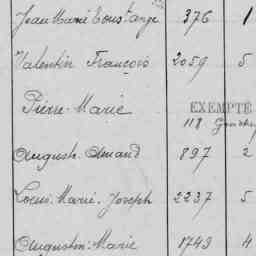 Jean Marie Toust. ange 376 1
Valentin François 2059 5
Pierre-Marie EXEMPTÉ
118
August. Amand 897 2
Louis-Marie-Joseph 2237 5
Augustin-Marie 1749 4